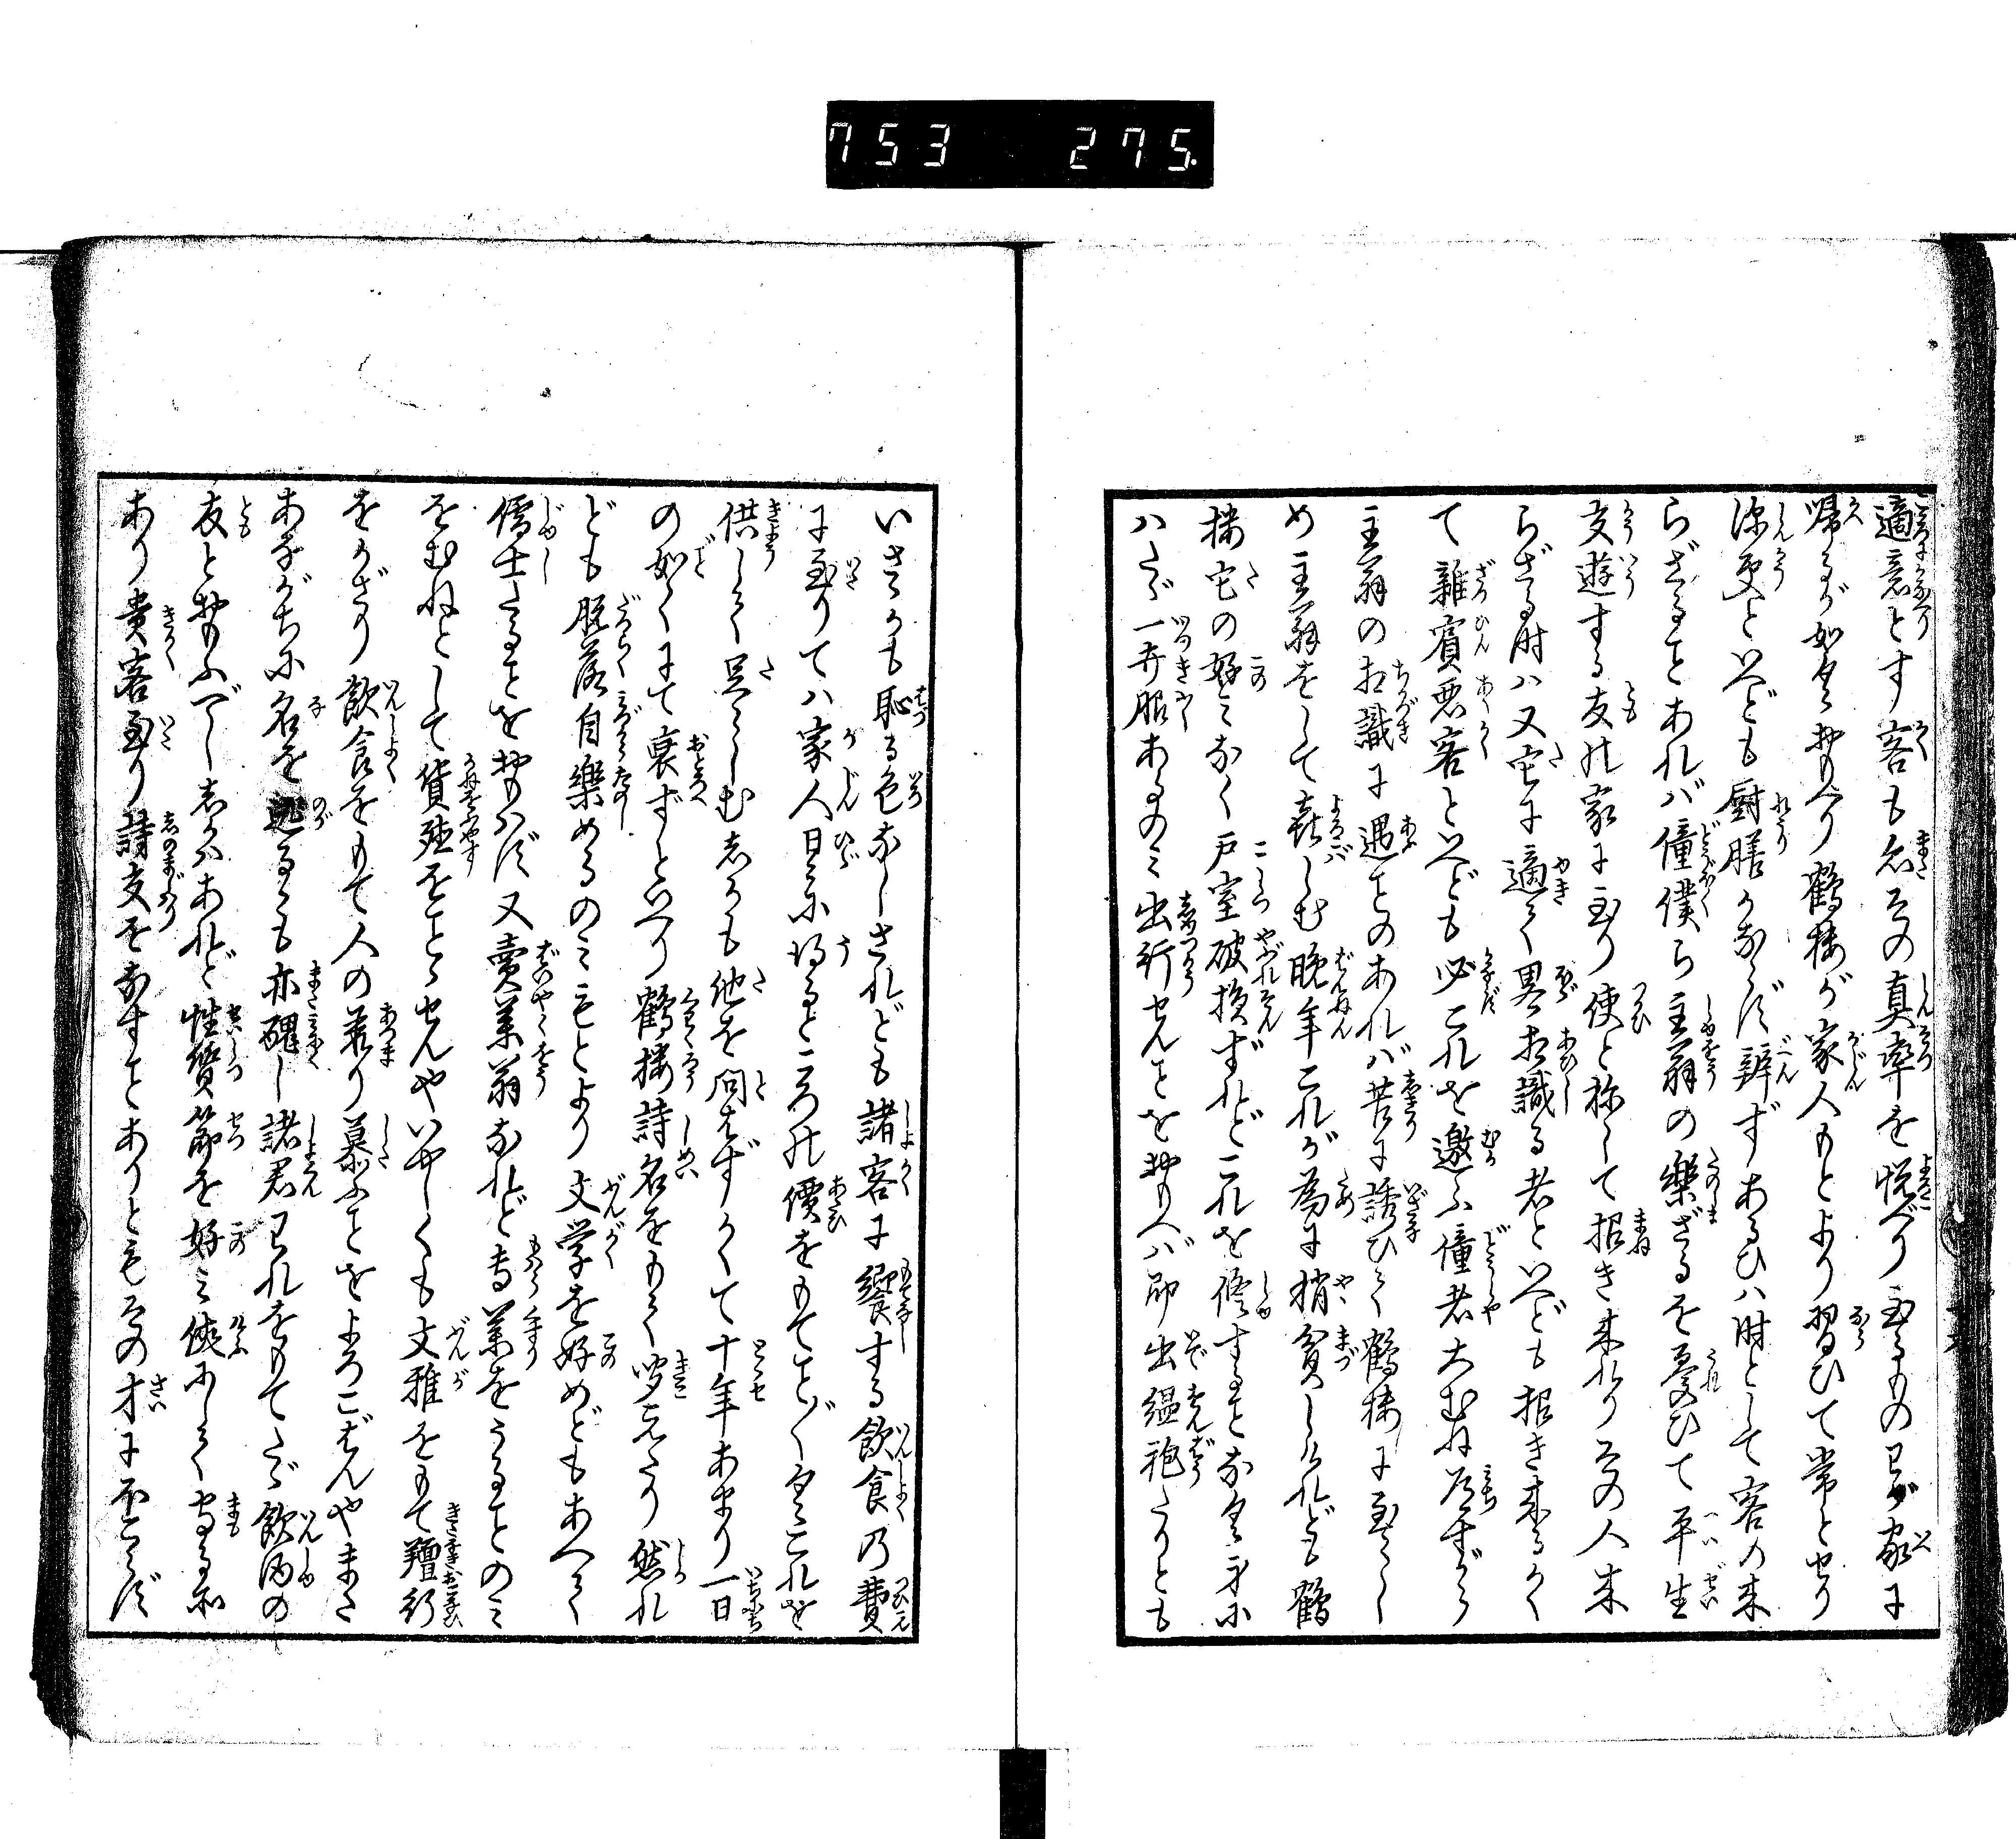 753 275.
適意とす客も亦その真率を悦べり至るもの己が家に
帰るが如くおもへり鶴樓が家人もとより習ひて常とせり
深更といへども厨膳かならず辨ずあるひハ時として客の来
らざることあれバ僮僕ら主翁の樂ざるを憂ひて平生
交遊する友の家に至り使と称して招き来れりその人来
らざる時ハ又它に適て畧相識る者といへども招き来るかく
て雜賓悪客といへども必これを邀ふ僮者大むね
主翁の相識に遇ことのあれバ苦に誘ひて鶴樓に至らし
め主翁をして歓しむ晩年これが為に稍貧しけれども鶴
樓它の好みなく戸室破損ずれどこれを修することなく身に
ハたゞ一弁服あるのミ出行せんことをおもへバ即出縕袍たりとも
いさゝかも恥る色なしされども諸客に饗する飲食乃費
に至りてハ家人日々に得るところの價をもてこと〴〵くこれを
供して足らしむしかも他を問はずかくて十年あまり一日
の如くにて衰ずといへり鶴樓詩名をもて聞えたり然れ
ども脱落自樂めるのミもとより文学を好めどもあへて
儒士たることをおもハず又賣薬翁なれど専業をうることのミ
をむねとして貨殖をことゝせんやいやしくも文雅をもて羶行
をかざり飲食をもて人の羶り慕ふことをよろこばんやまさ
あながちに名を遁るゝも亦醜し諸君己れをもてたゞ飲酒の
友とおもふべししかハあれど性質節を好ミ侠にして守る所
あり貴客至り詩文をなすことありともその才に誇らず